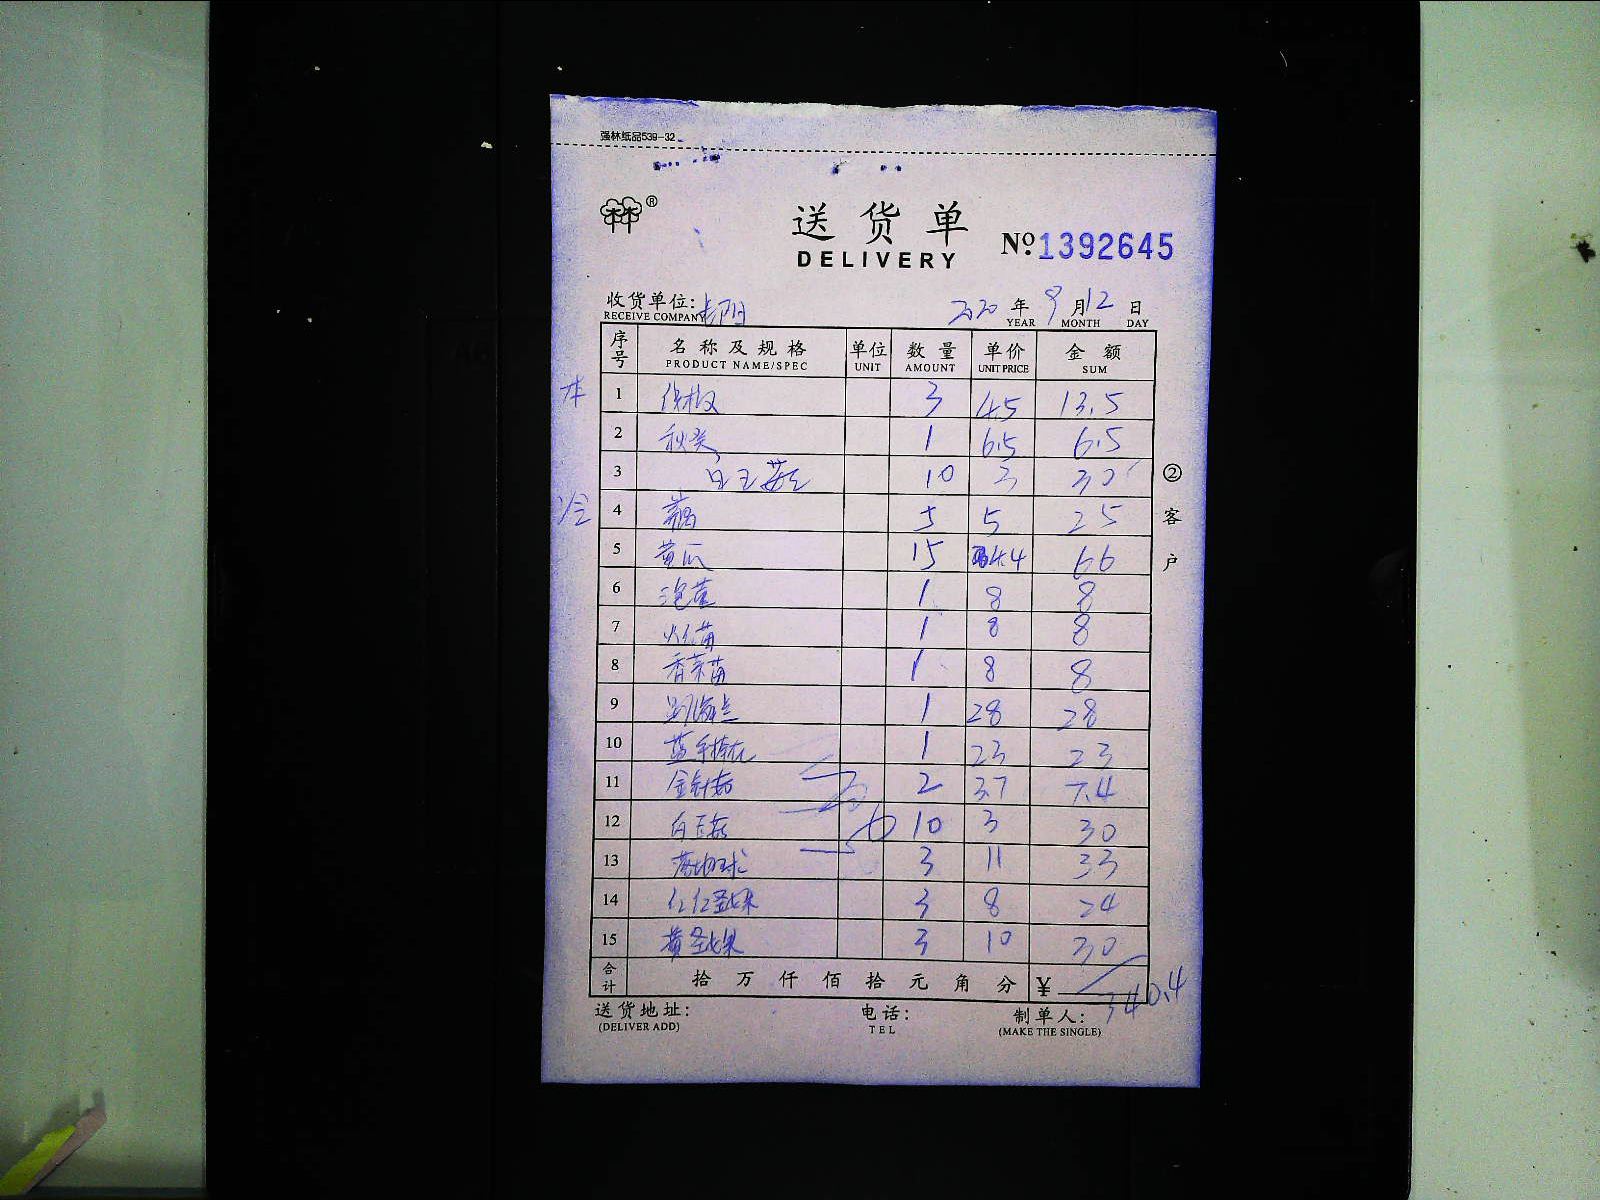 强林纸品539-32
®
送货单
DELIVERY
№ 1392645
收货单位:
RECEIVE COMPANY
2020 年 9 月 12 日
YEAR MONTH DAY
序号 名称及规格 单位 数量 单价 金额
PRODUCT NAME/SPEC UNIT AMOUNT UNIT PRICE SUM
1 3 4.5 13.5
2 秋葵 1 6.5 6.5
3 白玉菇 10 3 30
冷 4 5 5 25
5 黄瓜 15 4.4 66
6 1 8 8
7 苗 1 8 8
8 香菜苗 1 8 8
9 1 28 28
10 1 23 23
11 金针菇 2 3.7 7.4
12 白玉菇 10 3 30
13 3 11 33
14 红圣女果 3 8 24
15 黄圣女果 3 10 30
合计 拾万仟佰拾元角分 ¥ 340.4
送货地址: 电话: 制单人:
(DELIVER ADD) TEL (MAKE THE SINGLE)
② 客户